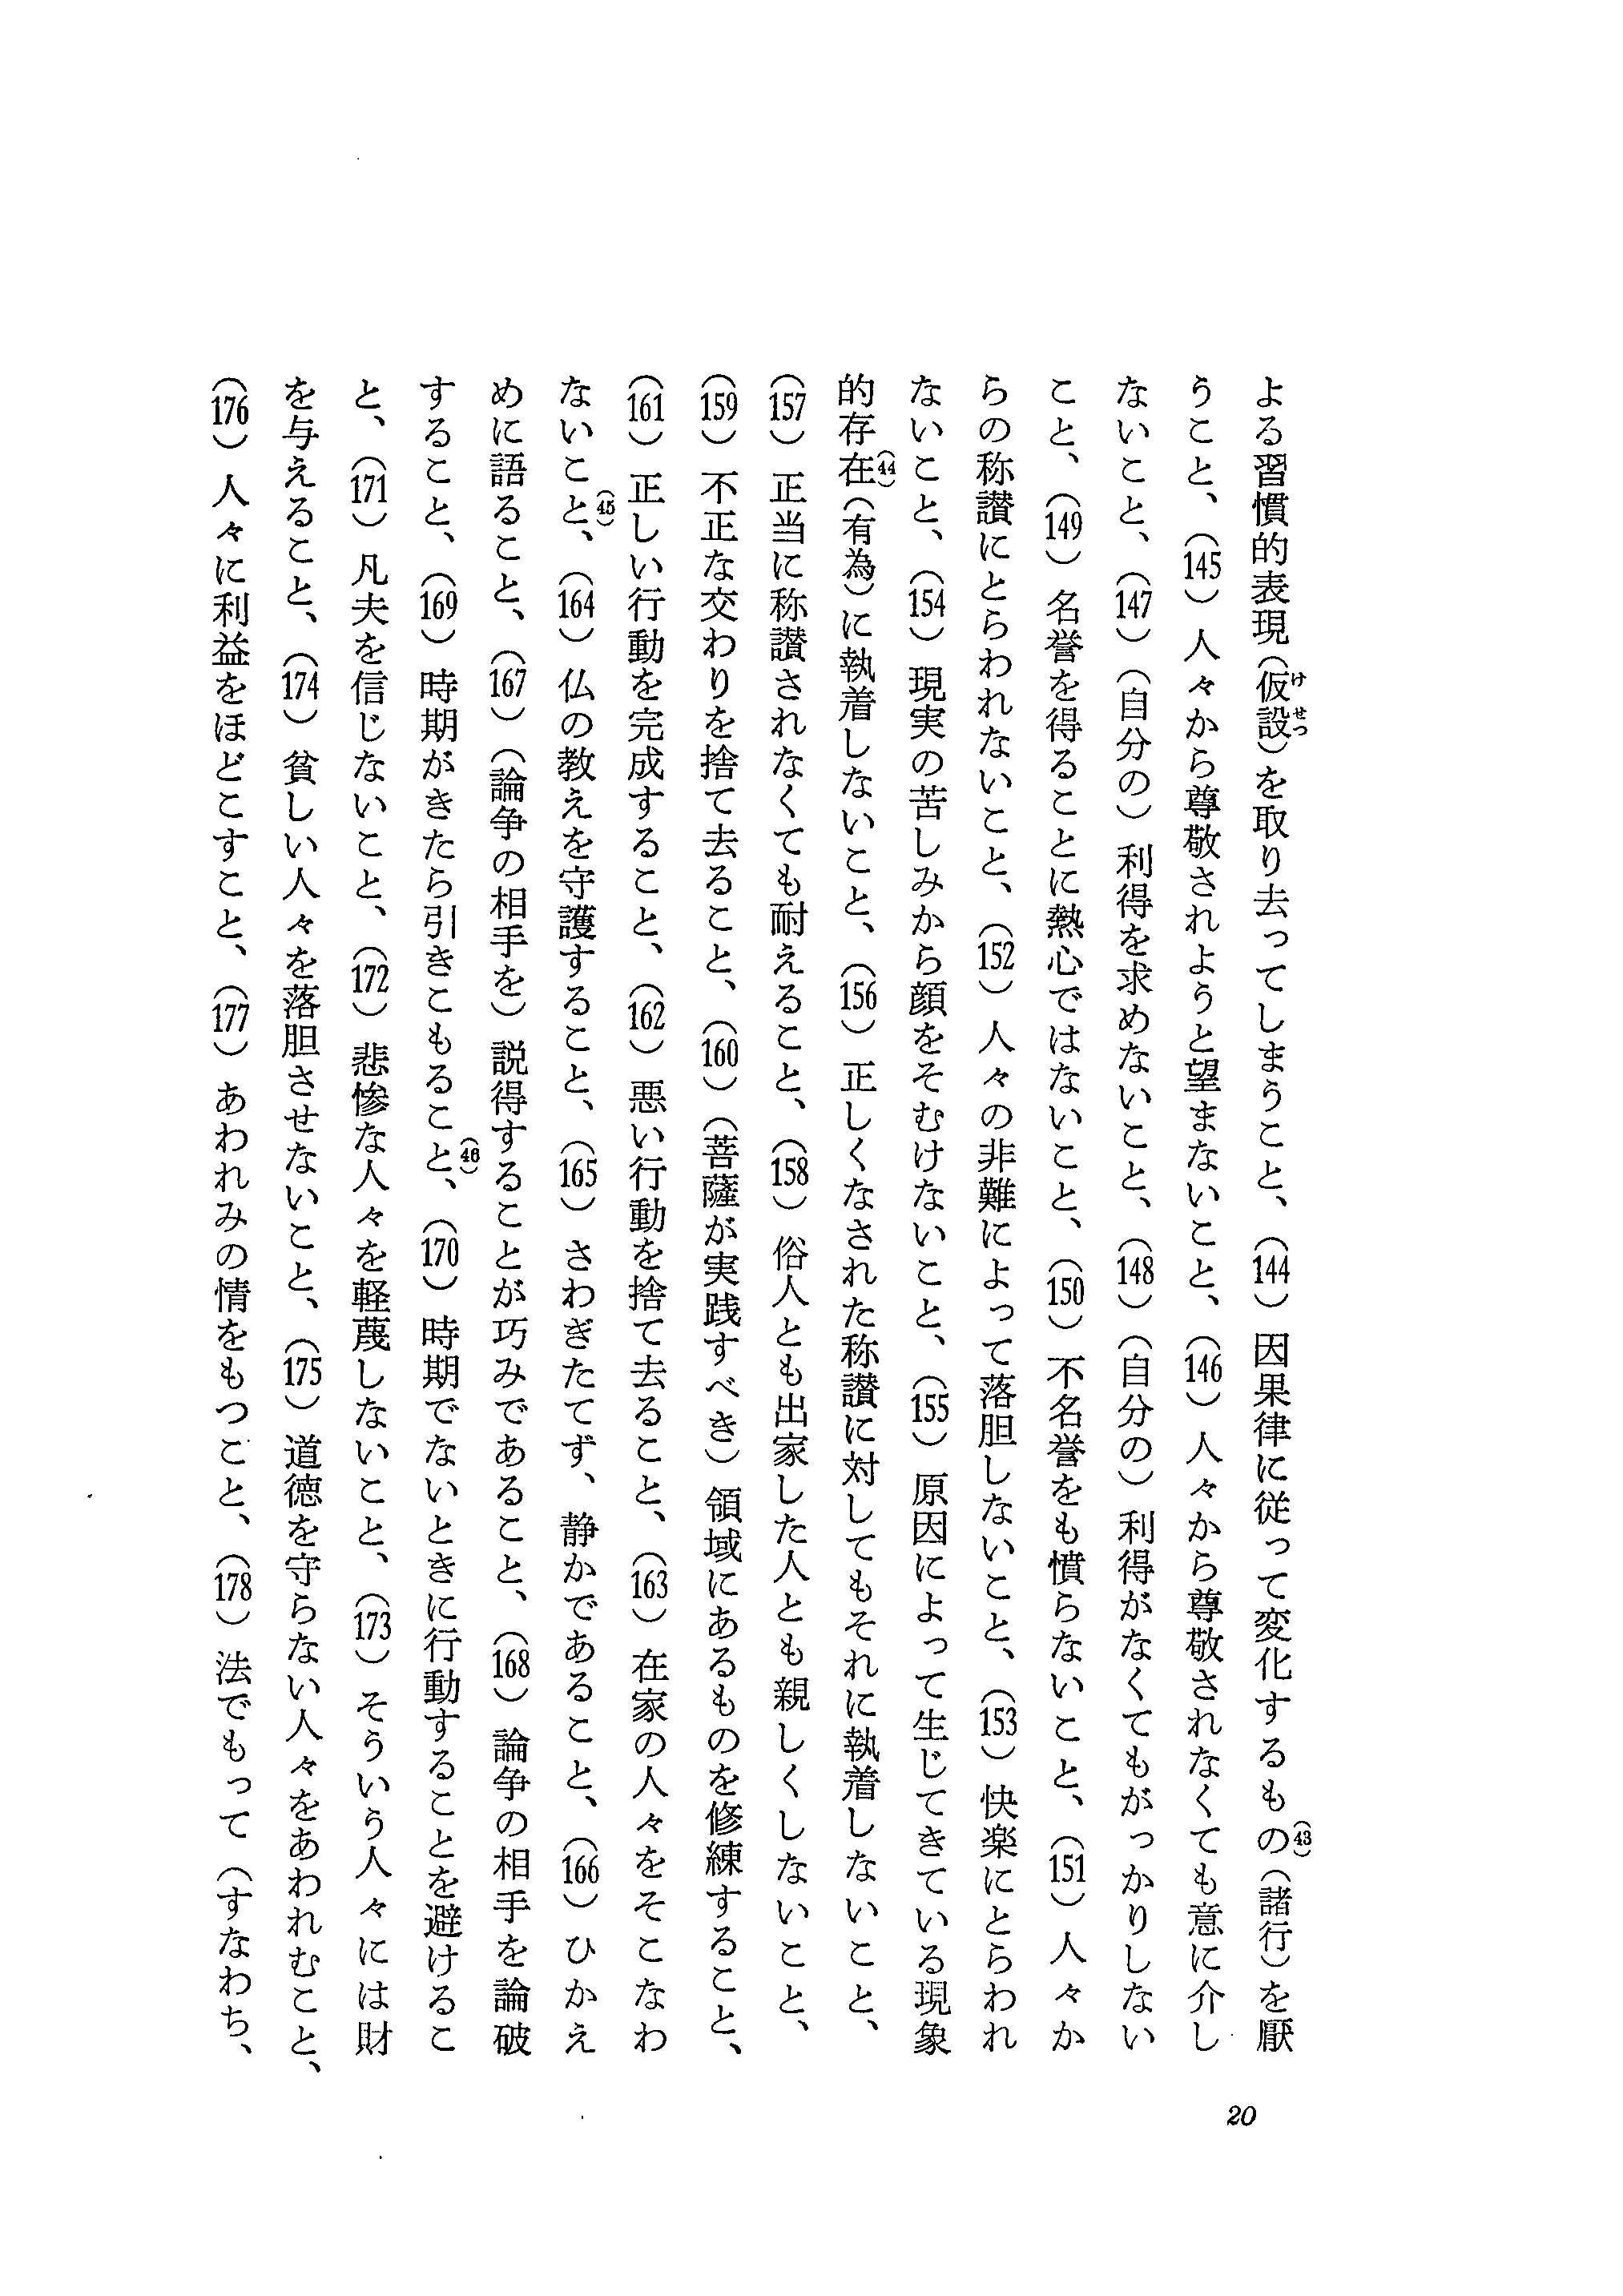 よる習慣的表現（仮設）を取り去ってしまうこと、（144）因果律に従って変化するもの（43）（諸行）を厭
けせつ
うこと、（145）人々から尊敬されようと望まないこと、（146）人々から尊敬されなくても意に介し
ないこと、（147）（自分の）利得を求めないこと、（148）（自分の）利得がなくてもがっかりしない
こと、（149）名誉を得ることに熱心ではないこと、（150）不名誉をも憤らないこと、（151）人々か
らの称讃にとらわれないこと、（152）人々の非難によって落胆しないこと、（153）快楽にとらわれ
ないこと、（154）現実の苦しみから顔をそむけないこと、（155）原因によって生じてきている現象
的存在（44）（有為）に執着しないこと、（156）正しくなされた称讃に対してもそれに執着しないこと、
（157）正当に称讃されなくても耐えること、（158）俗人とも出家した人とも親しくしないこと、
（159）不正な交わりを捨て去ること、（160）（菩薩が実践すべき）領域にあるものを修練すること、
（161）正しい行動を完成すること、（162）悪い行動を捨て去ること、（163）在家の人々をそこなわ
ないこと（45）、（164）仏の教えを守護すること、（165）さわぎたてず、静かであること、（166）ひかえ
めに語ること、（167）（論争の相手を）説得することが巧みであること、（168）論争の相手を論破
すること、（169）時期がきたら引きこもること（46）、（170）時期でないときに行動することを避けるこ
と、（171）凡夫を信じないこと、（172）悲惨な人々を軽蔑しないこと、（173）そういう人々には財
を与えること、（174）貧しい人々を落胆させないこと、（175）道徳を守らない人々をあわれむこと、
（176）人々に利益をほどこすこと、（177）あわれみの情をもつこと、（178）法でもって（すなわち、
20